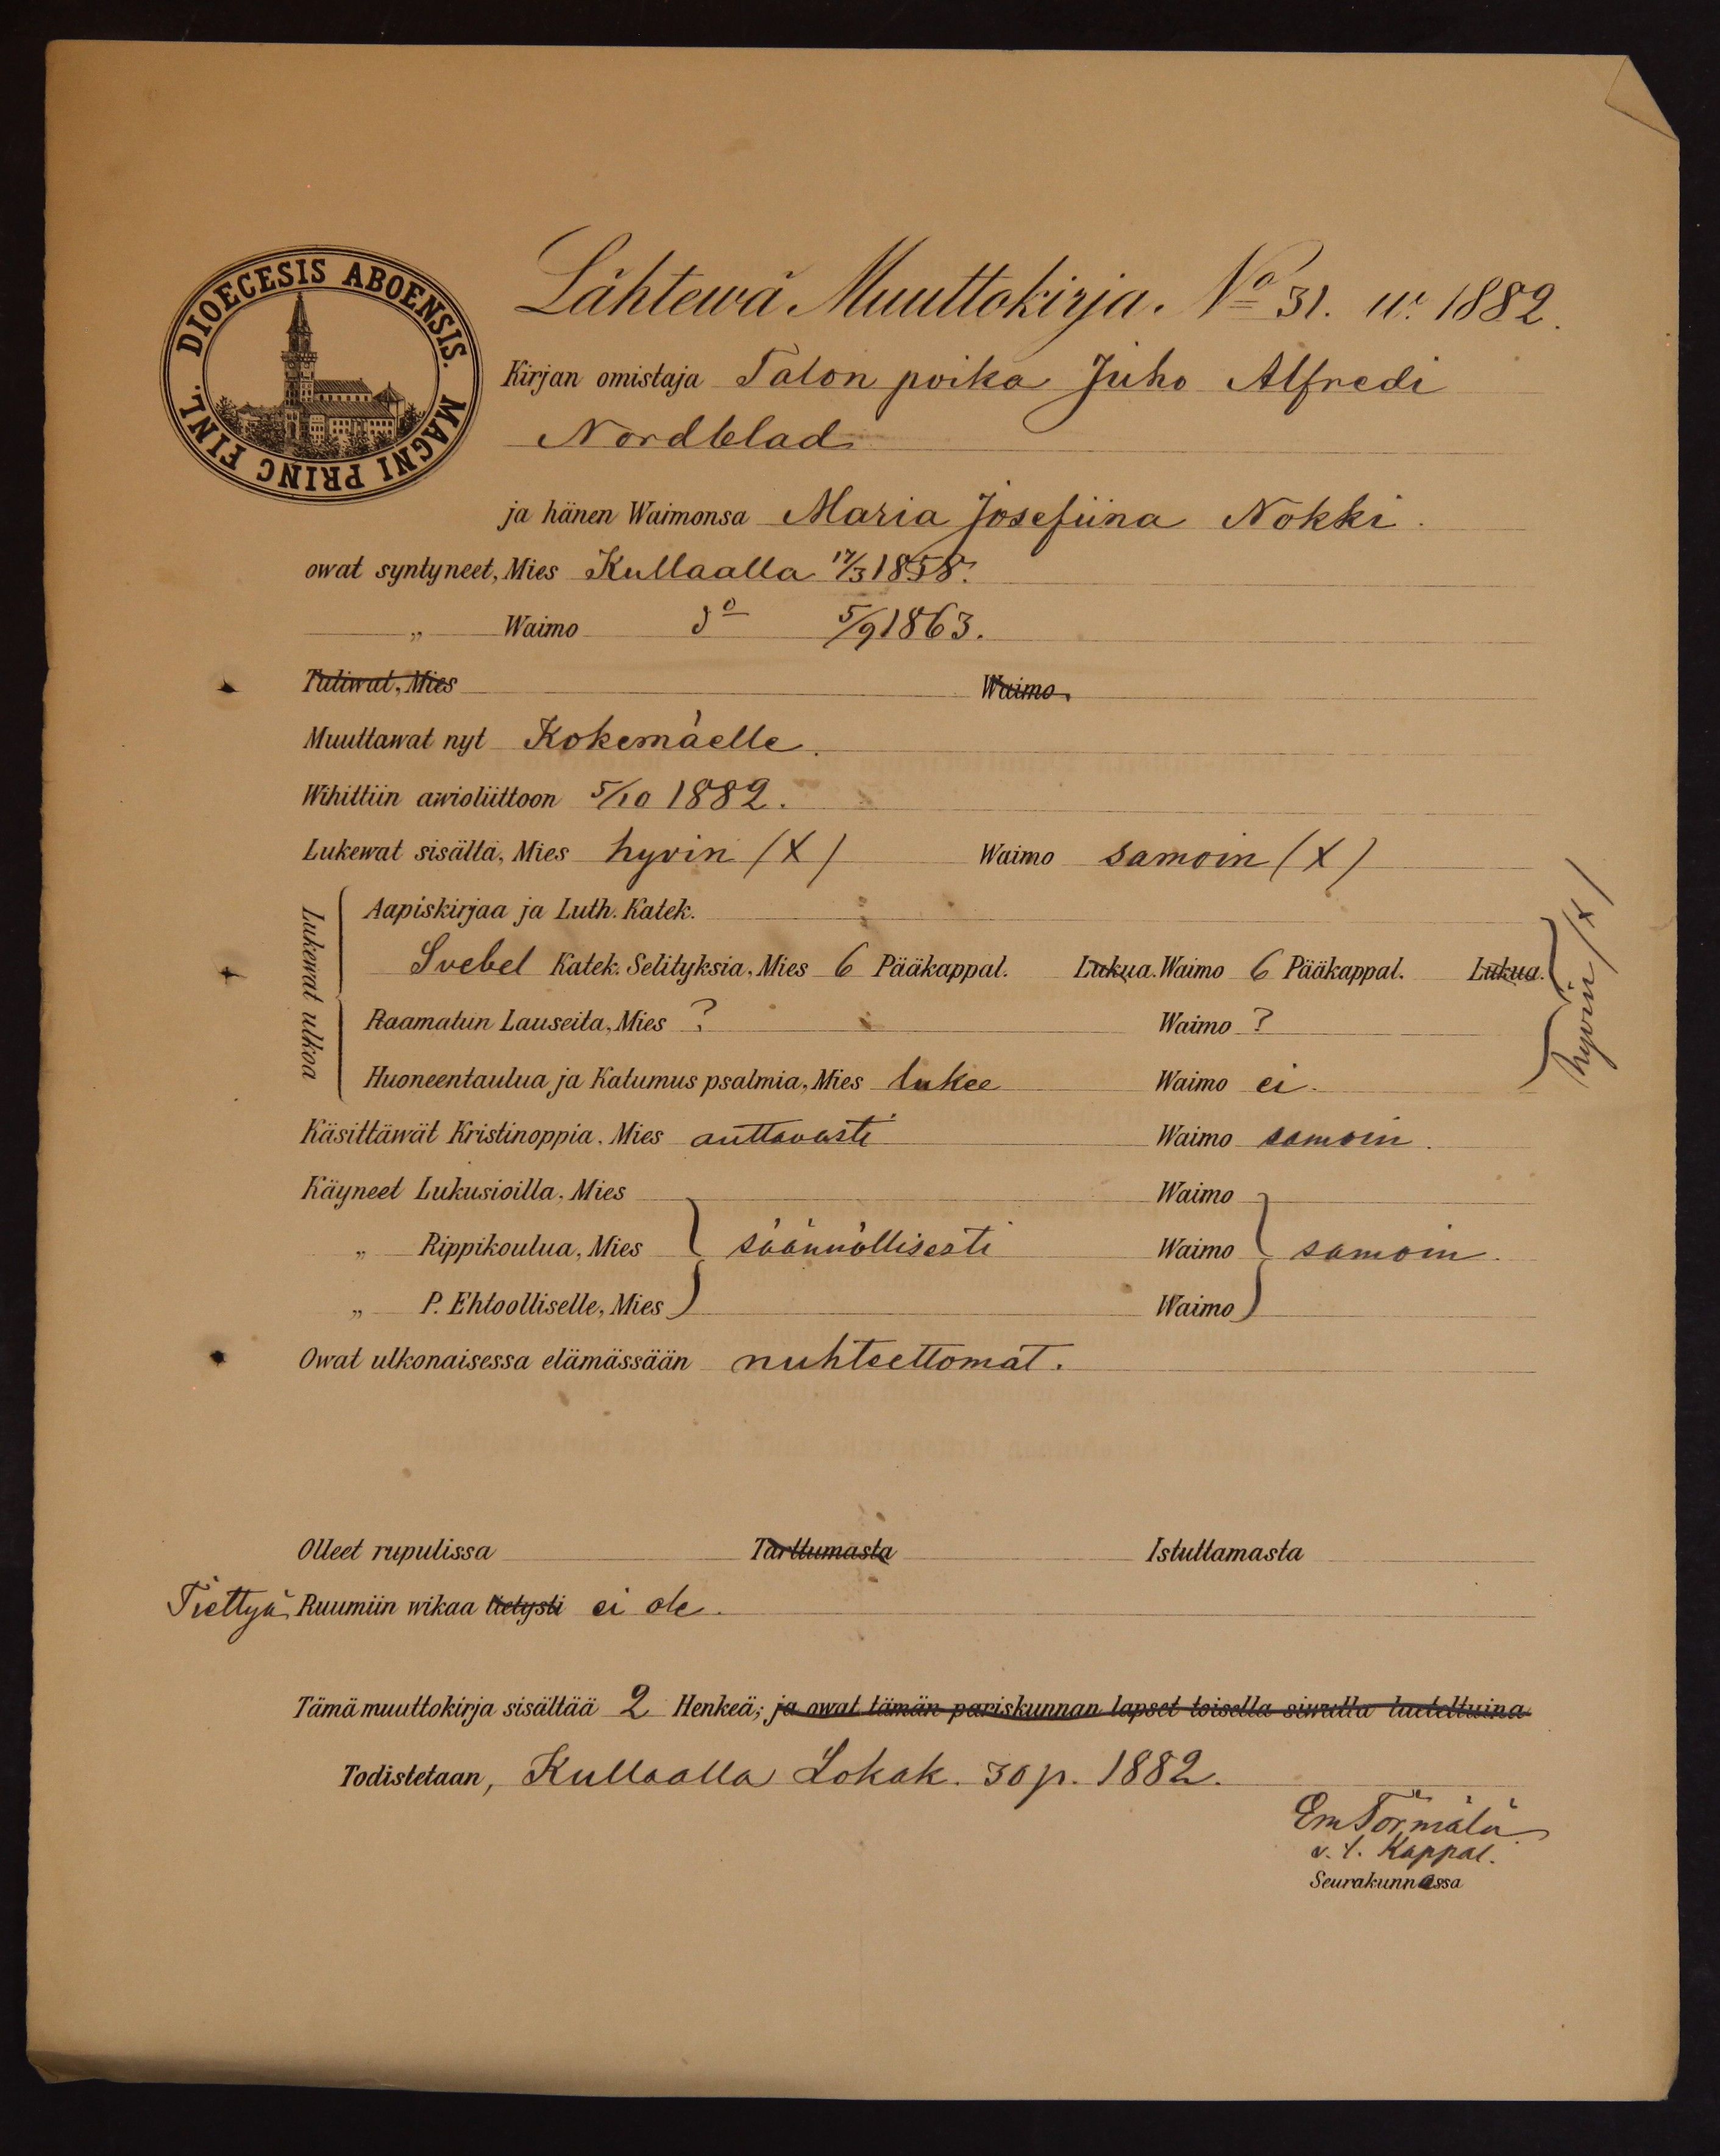 DIOECESIS ABOENSIS. MAGNI PRINC FINL.
Lähtewä Muuttokirja. No 31. w. 1882.
Kirjan omistaja Talon poika Juho Alfredi
Nordblad
ja hänen Waimonsa Maria Josefiina Nokki.
owat syntyneet, Mies Kullaalla 17/3 1858.
„ Waimo do 5/9 1863.
Tuliwat, Mies Waimo
Muuttawat nyt Kokemäelle.
Wihittiin awioliittoon 5/10 1882.
Lukewat sisältä, Mies hyvin (X) Waimo samoin (X)
Lukewat ulkoa
Aapiskirjaa ja Luth. Katek.
Svebel Katek. Selityksiä, Mies 6 Pääkappal. Lukua. Waimo 6 Pääkappal. Lukua.
hyvin (X)
Raamatun Lauseita, Mies ? Waimo ?
Huoneentaulua ja Katumus psalmia, Mies lukee Waimo ei.
Käsittäwät Kristinoppia, Mies auttavasti Waimo samoin.
Käyneet Lukusioilla, Mies Waimo
„ Rippikoulua, Mies säännöllisesti Waimo samoin.
„ P. Ehtoolliselle, Mies Waimo
Owat ulkonaisessa elämässään nuhteettomat.
Olleet rupulissa Tarttumasta Istuttamasta
Tiettyä Ruumiin wikaa tietysti ei ole.
Tämä muuttokirja sisältää 2 Henkeä; ja owat tämän pariskunnan lapset toisella siwulla lueteltuina
Todistetaan, Kullaalla Lokak. 30 p. 1882.
Em Törmälä
v. t. Kappal.
Seurakunnassa